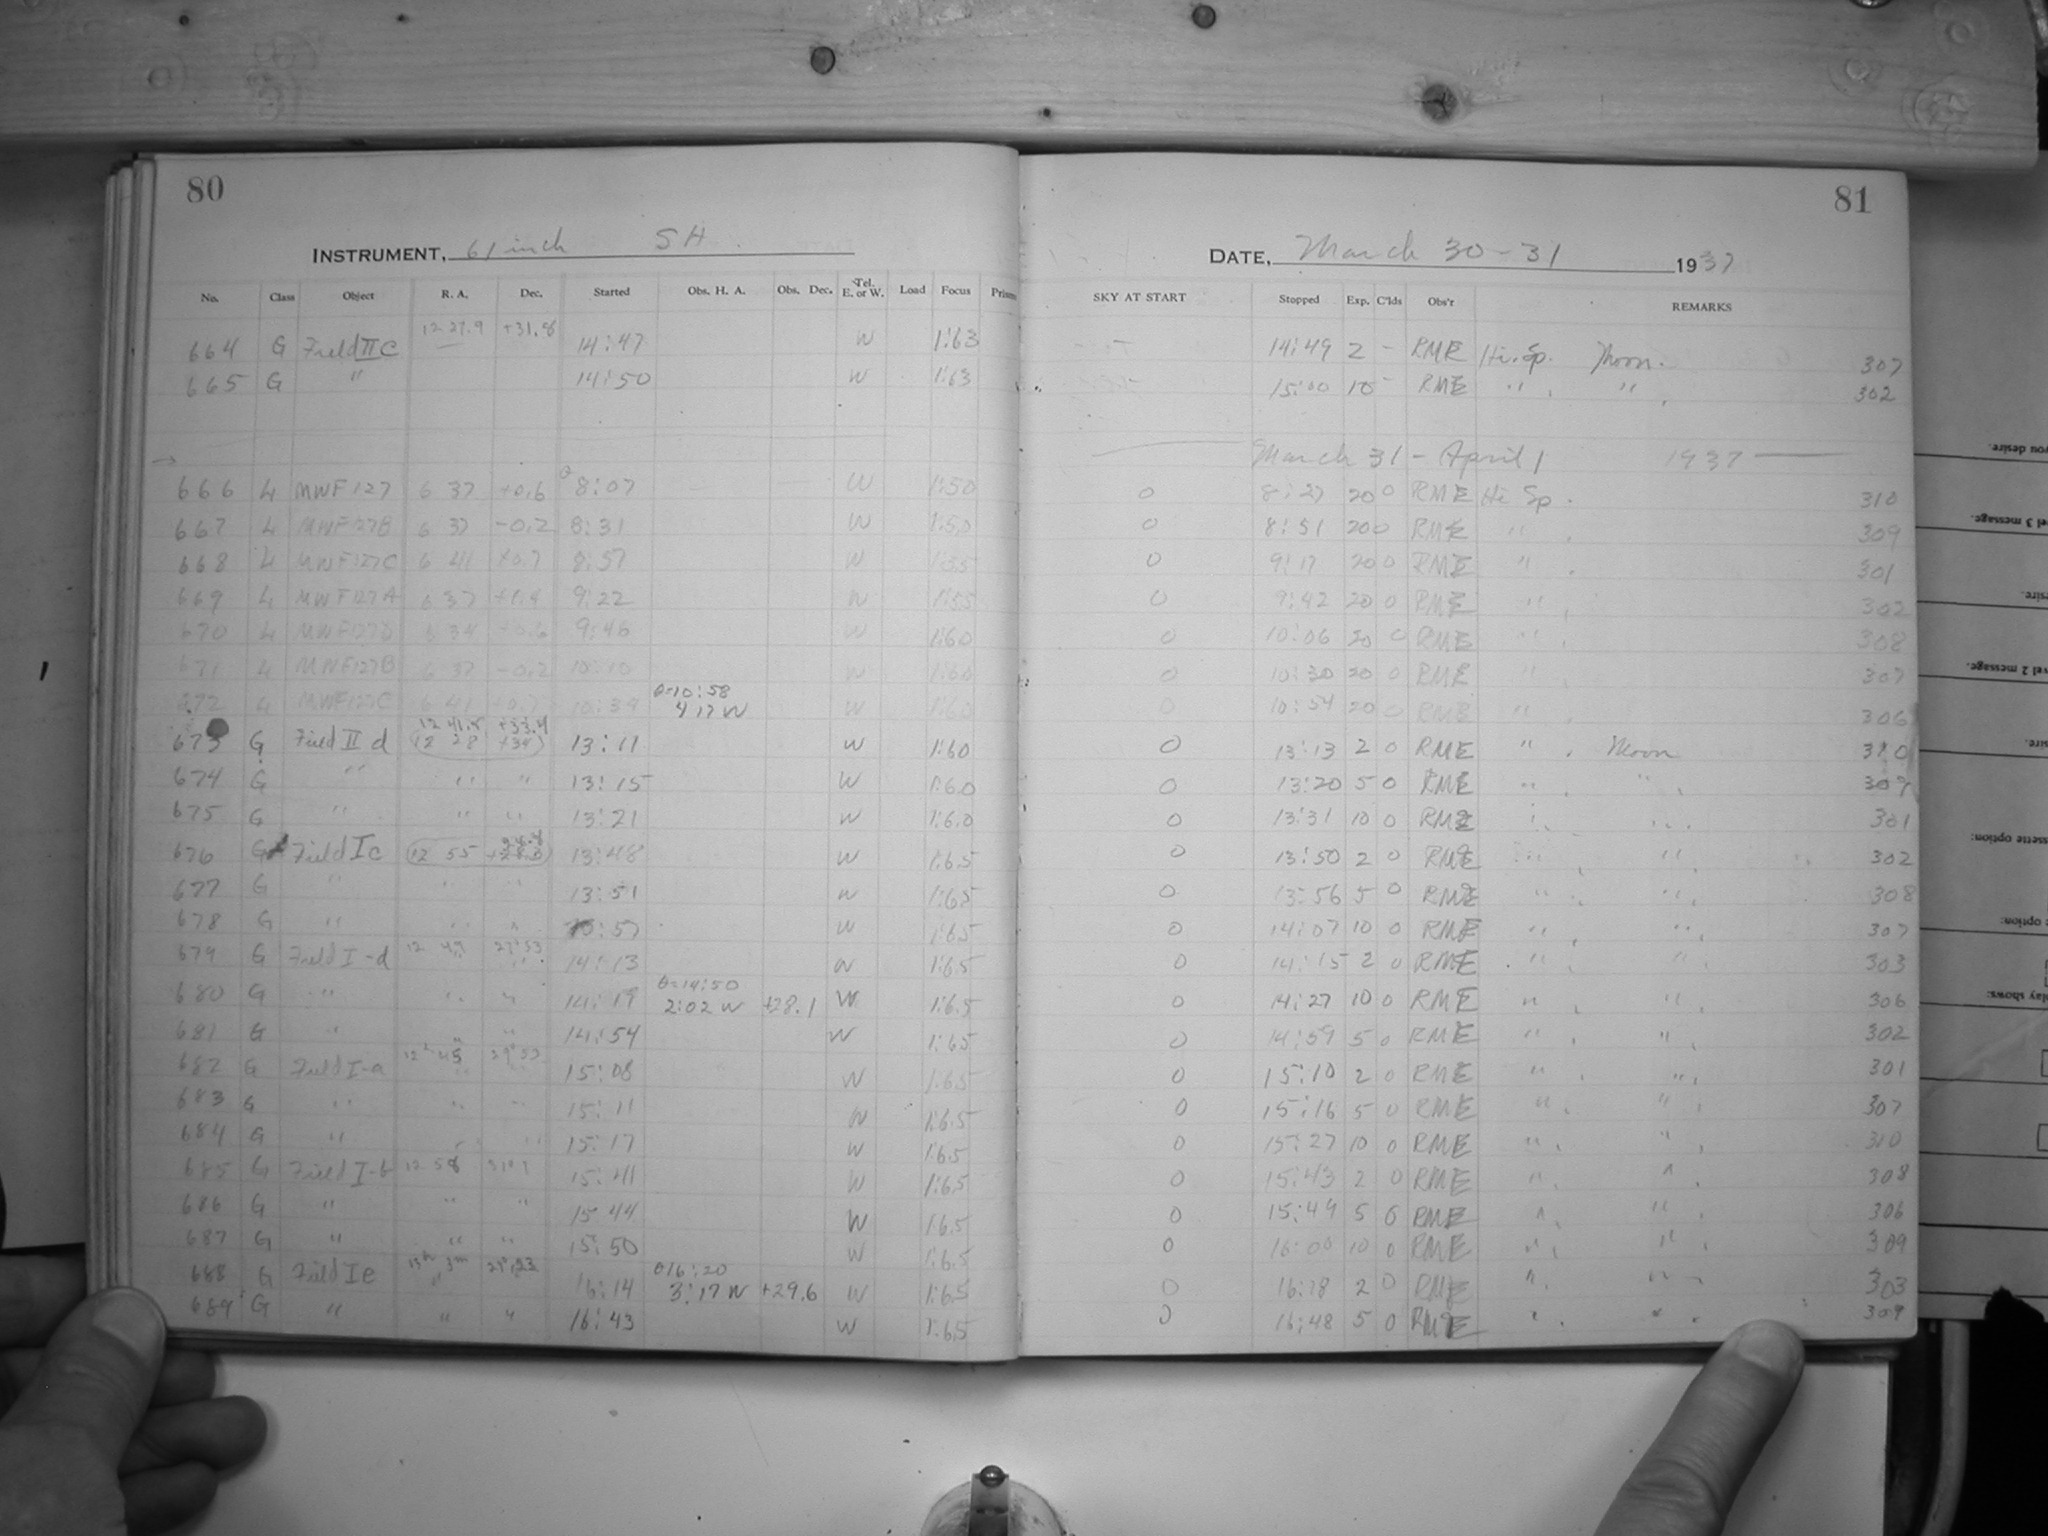 80
81
INSTRUMENT, 61 inch SH
DATE, March 30-31 1937
No. Class Object R. A. Dec. Started Obs. H. A. Obs. Dec. Tel. E. or W. Load Focus Prism SKY AT START Stopped Exp. C'lds Obs'r REMARKS
664 G Field II c 12 27.9 +31.8 14:47 W 1:63 14:49 2 - RME Hi. Sp. Moon. 307
665 G " 14:50 W 1:63 15:00 10 - RME " " 302
March 31 - April 1 1937
666 L MWF127 6 37 +0.6 8:07 W 1:50 0 8:27 20 0 RME Hi Sp. 310
667 L MWF127B 6 37 -0.2 8:31 W 1:50 0 8:51 20 0 RME " 309
668 L MWF127C 6 41 +0.7 8:57 W 1:55 0 9:17 20 0 RME " 301
669 L MWF127A 6 37 +1.4 9:22 W 1:55 0 9:42 20 0 RME " 302
670 L MWF127D 6 34 +0.6 9:46 W 1:60 0 10:06 20 0 RME " 308
671 L MWF127B 6 37 -0.2 10:10 W 1:60 0 10:30 20 0 RME " 307
θ=10:58
672 L MWF127C 6 41 +0.7 10:34 4 17 W W 1:60 0 10:54 20 0 RME " 306
12 41.5 +33.4
673 G Field II d (12 28 +34) 13:11 W 1:60 0 13:13 2 0 RME " Moon 310
674 G " " " 13:15 W 1:60 0 13:20 5 0 RME " " 309
675 G " " " 13:21 W 1:60 0 13:31 10 0 RME " " 301
676 G Field I c 12 55 13:48 W 1:65 0 13:50 2 0 RME " " 302
677 G " " " 13:51 W 1:65 0 13:56 5 0 RME " " 308
678 G " " " 13:57 W 1:65 0 14:07 10 0 RME " " 307
679 G Field I-d 12 49 27°53 14:13 W 1:65 0 14:15 2 0 RME " " 303
θ=14:50
680 G " " " 14:17 2:02 W +28.1 W 1:65 0 14:27 10 0 RME " " 306
681 G " " " 14:54 W 1:65 0 14:59 5 0 RME " " 302
682 G Field I-a 12 45 29°53 15:08 W 1:65 0 15:10 2 0 RME " " 301
683 G " " " 15:11 W 1:65 0 15:16 5 0 RME " " 307
684 G " " " 15:17 W 1:65 0 15:27 10 0 RME " " 310
685 G Field I-b 12 58 15:41 W 1:65 0 15:43 2 0 RME " " 308
686 G " " " 15 44 W 1:65 0 15:49 5 0 RME " " 306
687 G " " " 15:50 W 1:65 0 16:00 10 0 RME " " 309
θ16:20
688 G Field I e 13h 3m 29°23 16:14 3:17 W +29.6 W 1:65 0 16:18 2 0 RME " " 303
689 G " " " 16:43 W 1:65 0 16:48 5 0 RME " " 309
you desire.
vel 3 message.
sire.
vel 2 message.
sire.
ssette option:
option:
play shows: